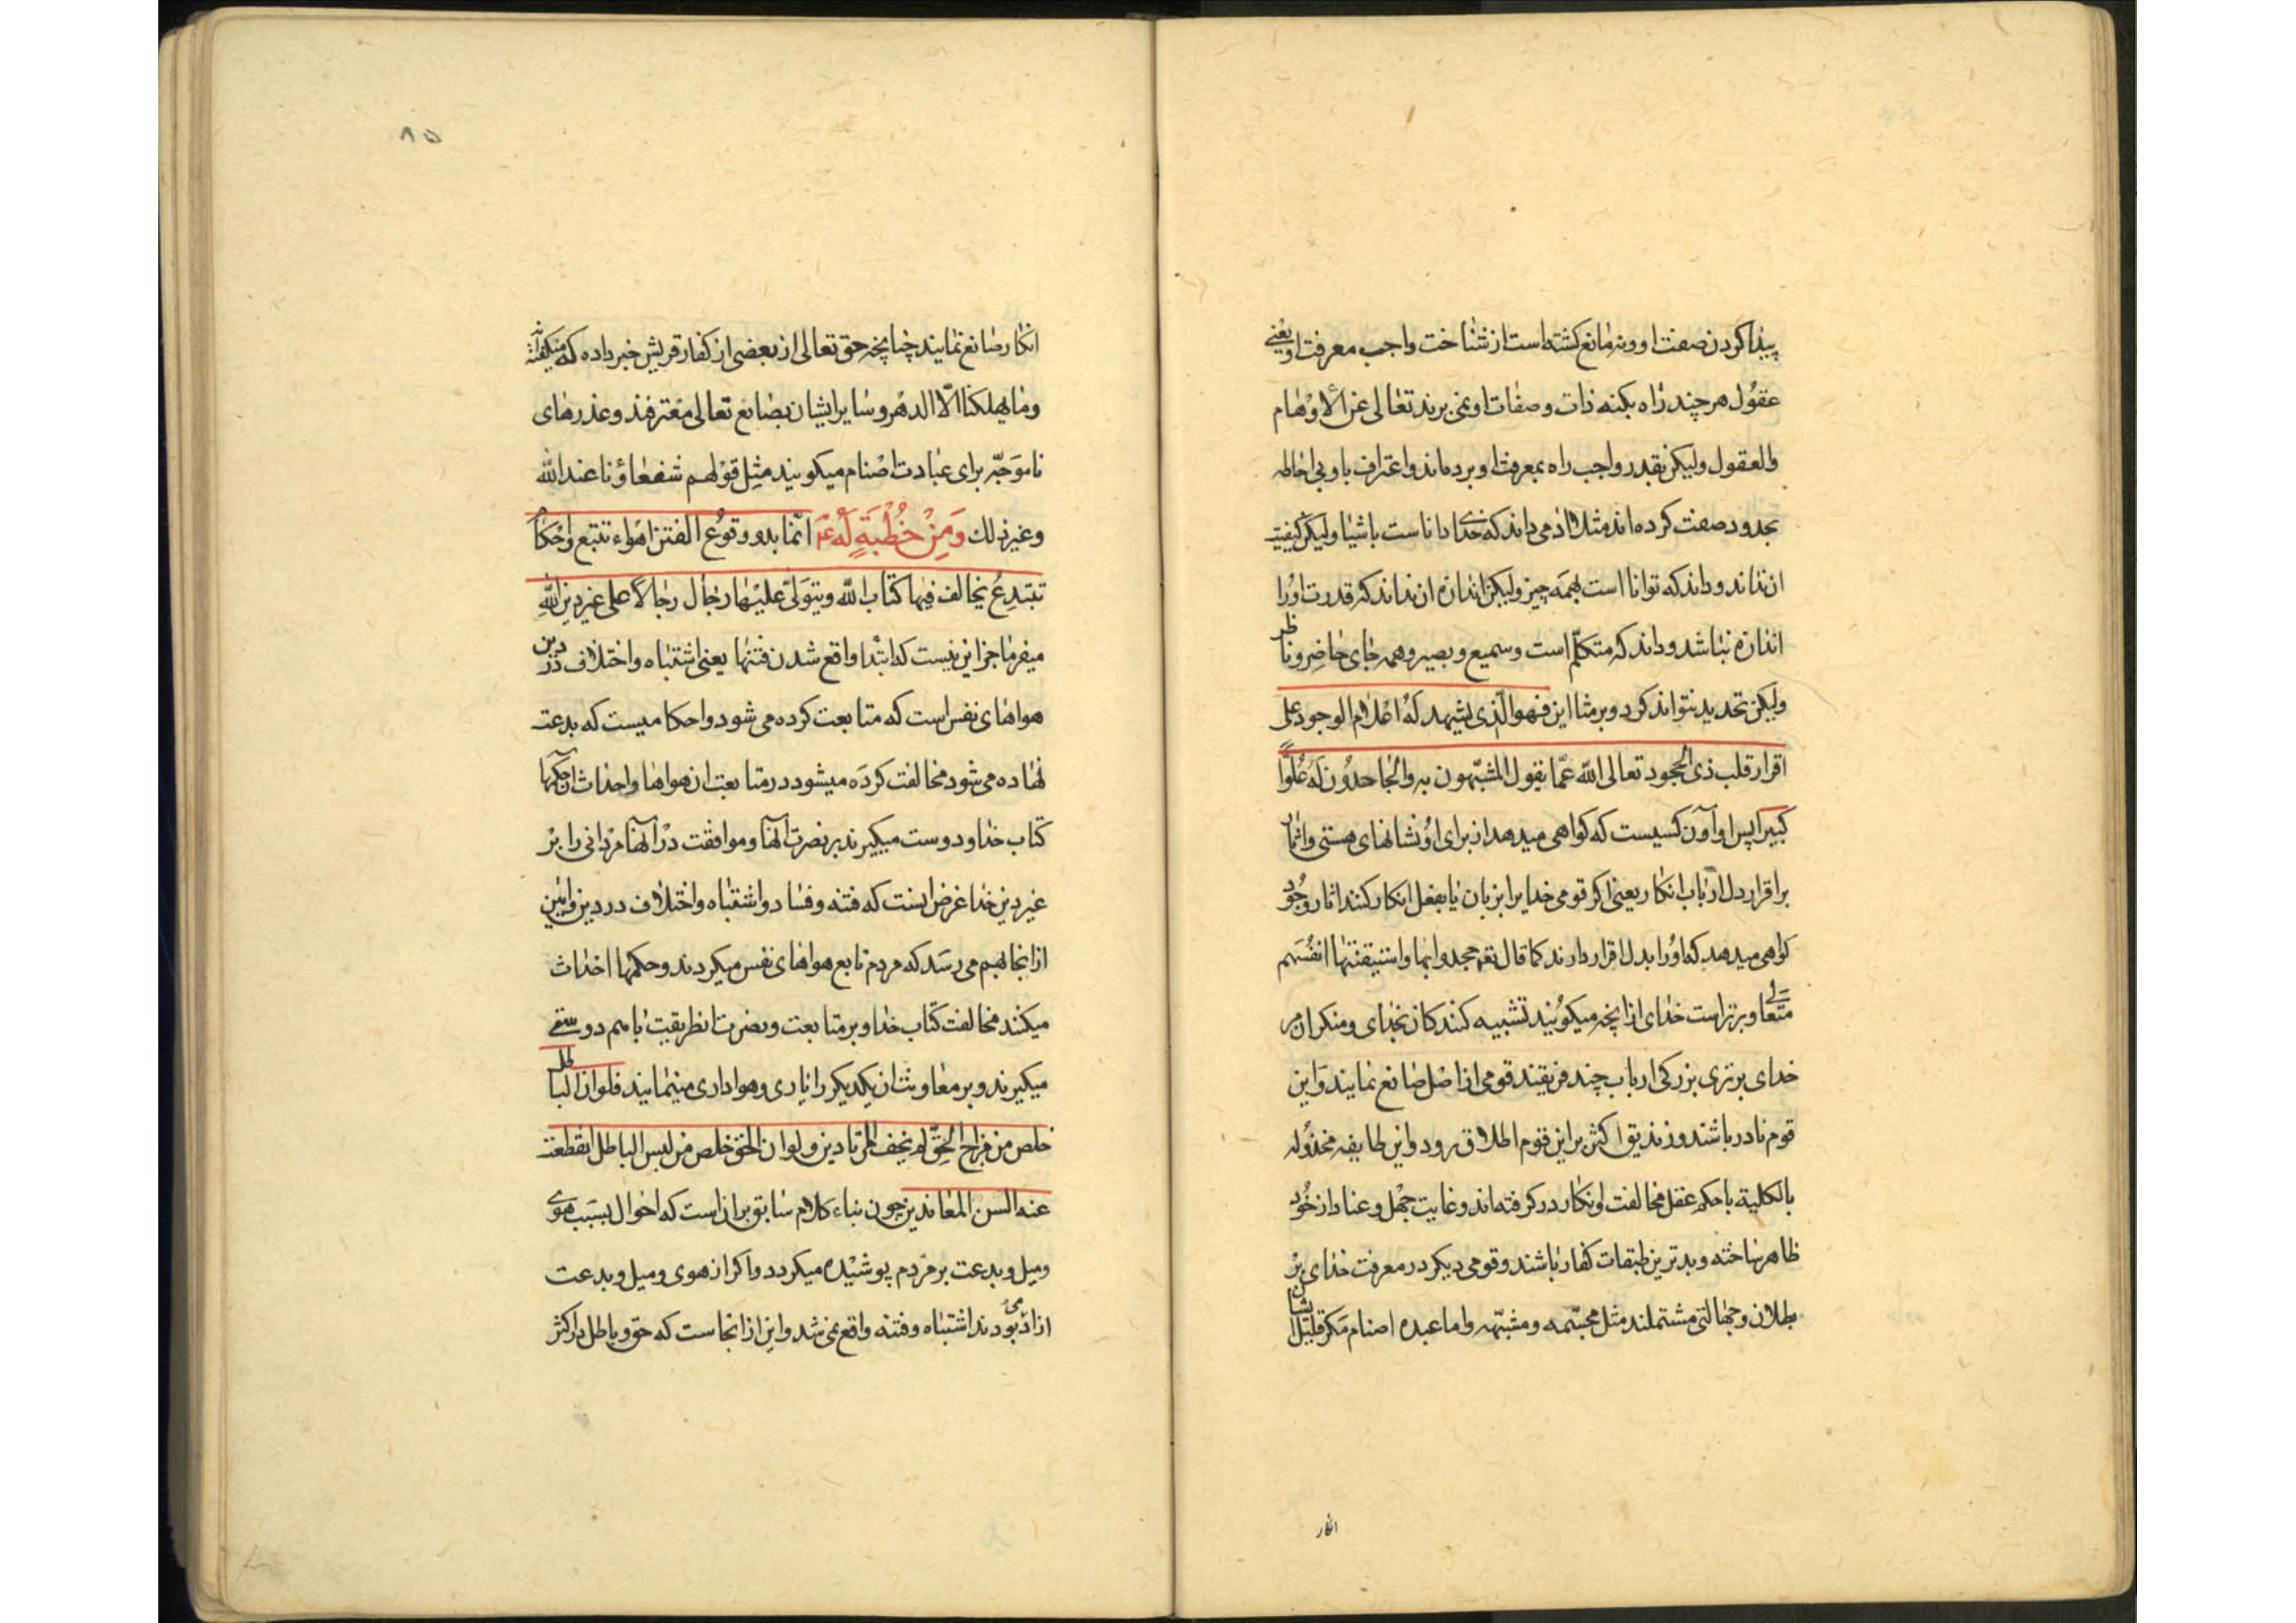 پیدا کردن صفت او و نه مانع کشته است از شناخت واجب معرفت او یعنی
عقول هر چند راه بکنه ذات و صفات او نمی برند تعالی عن الاوهام
والعقول ولیکن بقدر واجب راه بمعرفت او برده‌اند و اعتراف باو بی احاطه
بحدود صفت کرده اند مثلا اد می داند که خدای دانا ست باشیا ولیکن کیفیت
ان نداند و داند که توانا است بهمه چیز ولیکن اندازه ان نداند که قدرت او را
اندازه نباشد و داند که متکلّم است و سمیع و بصیر و همه جای حاضر و ناظر
ولیکن تحدید نتواند کرد و بر مثا این فهو الّذی یشهد له اعلام الوجود علی
اقرار قلب ذی الجحود تعالی اللّه عمّا یقول المشبّهون به والجاحدون له علوّا
کبیرا پس او آن کسیست که کواهی میدهد از برای او نشانهای هستی و اثار
بر اقرار دل ارباب انکار یعنی اکر قومی خدایرا بزبان یا بفعل انکار کنند اثار وجود
کواهی میدهد که او را بدل اقرار دارند کما قال تعه جحدوا بها و استیقنتها انفسهم
متعالی و برتر است خدای از انچه میکویند تشبیه کنند کان بخدای و منکران مر
خدای برتری بزرکی ارباب چند فریقند قومی از اصل صانع نمایند و این
قوم نادر باشند و زندیق اکثر بر این قوم اطلاق رود و این طایفه مخذوله
بالکلیه با حکم عقل مخالفت و انکار در کرفته‌اند و غایت جهل و عناد از خود
ظاهر ساخته و بدترین طبقات کفار باشند و قومی دیکر در معرفت خدای بر
بطلان و جهالتی مشتملند مثل مجسّمه و مشبّهه و اما عبده اصنام مکر قلیل ایشان
انکار
۸۵
انکار صانع نمایند چنانچه حق تعالی از بعضی از کفار قریش خبر داده که میکفته‌اند
و ما یهلکنا الّا الدهر و سایر ایشان بصانع تعالی معترفند و عذرهای
ناموجّه برای عبادت اصنام میکویند مثل قولهم شفعاؤنا عند اللّه
و غیر ذلك وَمِنْ خُطْبَةٍ لَهُ عم انّما بدو وقوع الفتن اهواء تتبع و احکام
تبتدع یخالف فیها کتاب اللّه و یتولّی علیها رجال رجالا علی غیر دین اللّه
میفرما جز این نیست که ابتدا واقع شدن فتنها یعنی اشتباه و اختلاف در دین
هواهای نفس است که متابعت کرده می شود و احکا میست که بدعت
نهاده می شود مخالفت کرده میشود در متابعت ان هواها و احداث ان حکمها
کتاب خدا و دوست میکیرند بر نصرت آنها و موافقت در آنها مردانی را بر
غیر دین خدا غرض اینست که فتنه و فساد و اشتباه و اختلاف در دین و ایین
از انجا بهم می رسد که مردم تابع هواهای نفس میکردند و حکمها احداث
میکنند مخالفت کتاب خدا و بر متابعت و نصرت ان طریقت با هم دوستی
میکیرند و بر معاونت ان یکدیکر را یاری و هواداری مینمایند فلو ان الباطل
خلص من مزاج الحقّ لم یخف علی المرتادین و لو ان الحق خلص من لبس الباطل انقطعت
عنه السن المعاندین چون بناء کلام سابق بر ان است که احوال بسبب هوی
و میل و بدعت بر مردم پوشیده میکردد و اکر از هوی و میل و بدعت
ازاد می بودند اشتباه و فتنه واقع نمی شد و این از انجا ست که حق و باطل در اکثر